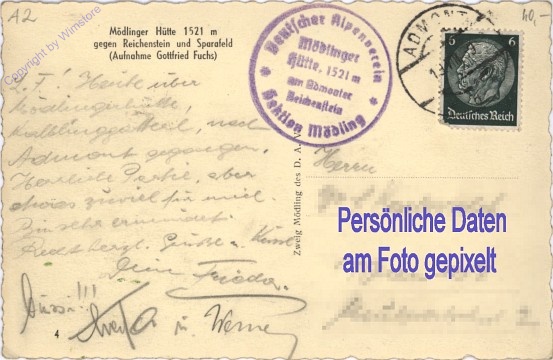 A2
40,-
Copyright by Wimstore
Mödlinger Hütte 1521 m
gegen Reichenstein und Sparafeld
(Aufnahme Gottfried Fuchs)
Deutscher Alpenverein
Mödlinger
Hütte, 1521 m
am Admonter
Reichenstein
Sektion Mödling
ADMONT
6 6
Deutsches Reich
L. F.! Heute über
Mödlingerhütte,
nach
Admont gegangen.
Herrliche Partie, aber
etwas zuviel für mich.
Recht herzl. Grüße u. Küsse
Dein Frieda.
Bussi!!!
u. Werner
4
Zweig Mödling des D. A. V.
Herrn
Persönliche Daten
am Foto gepixelt